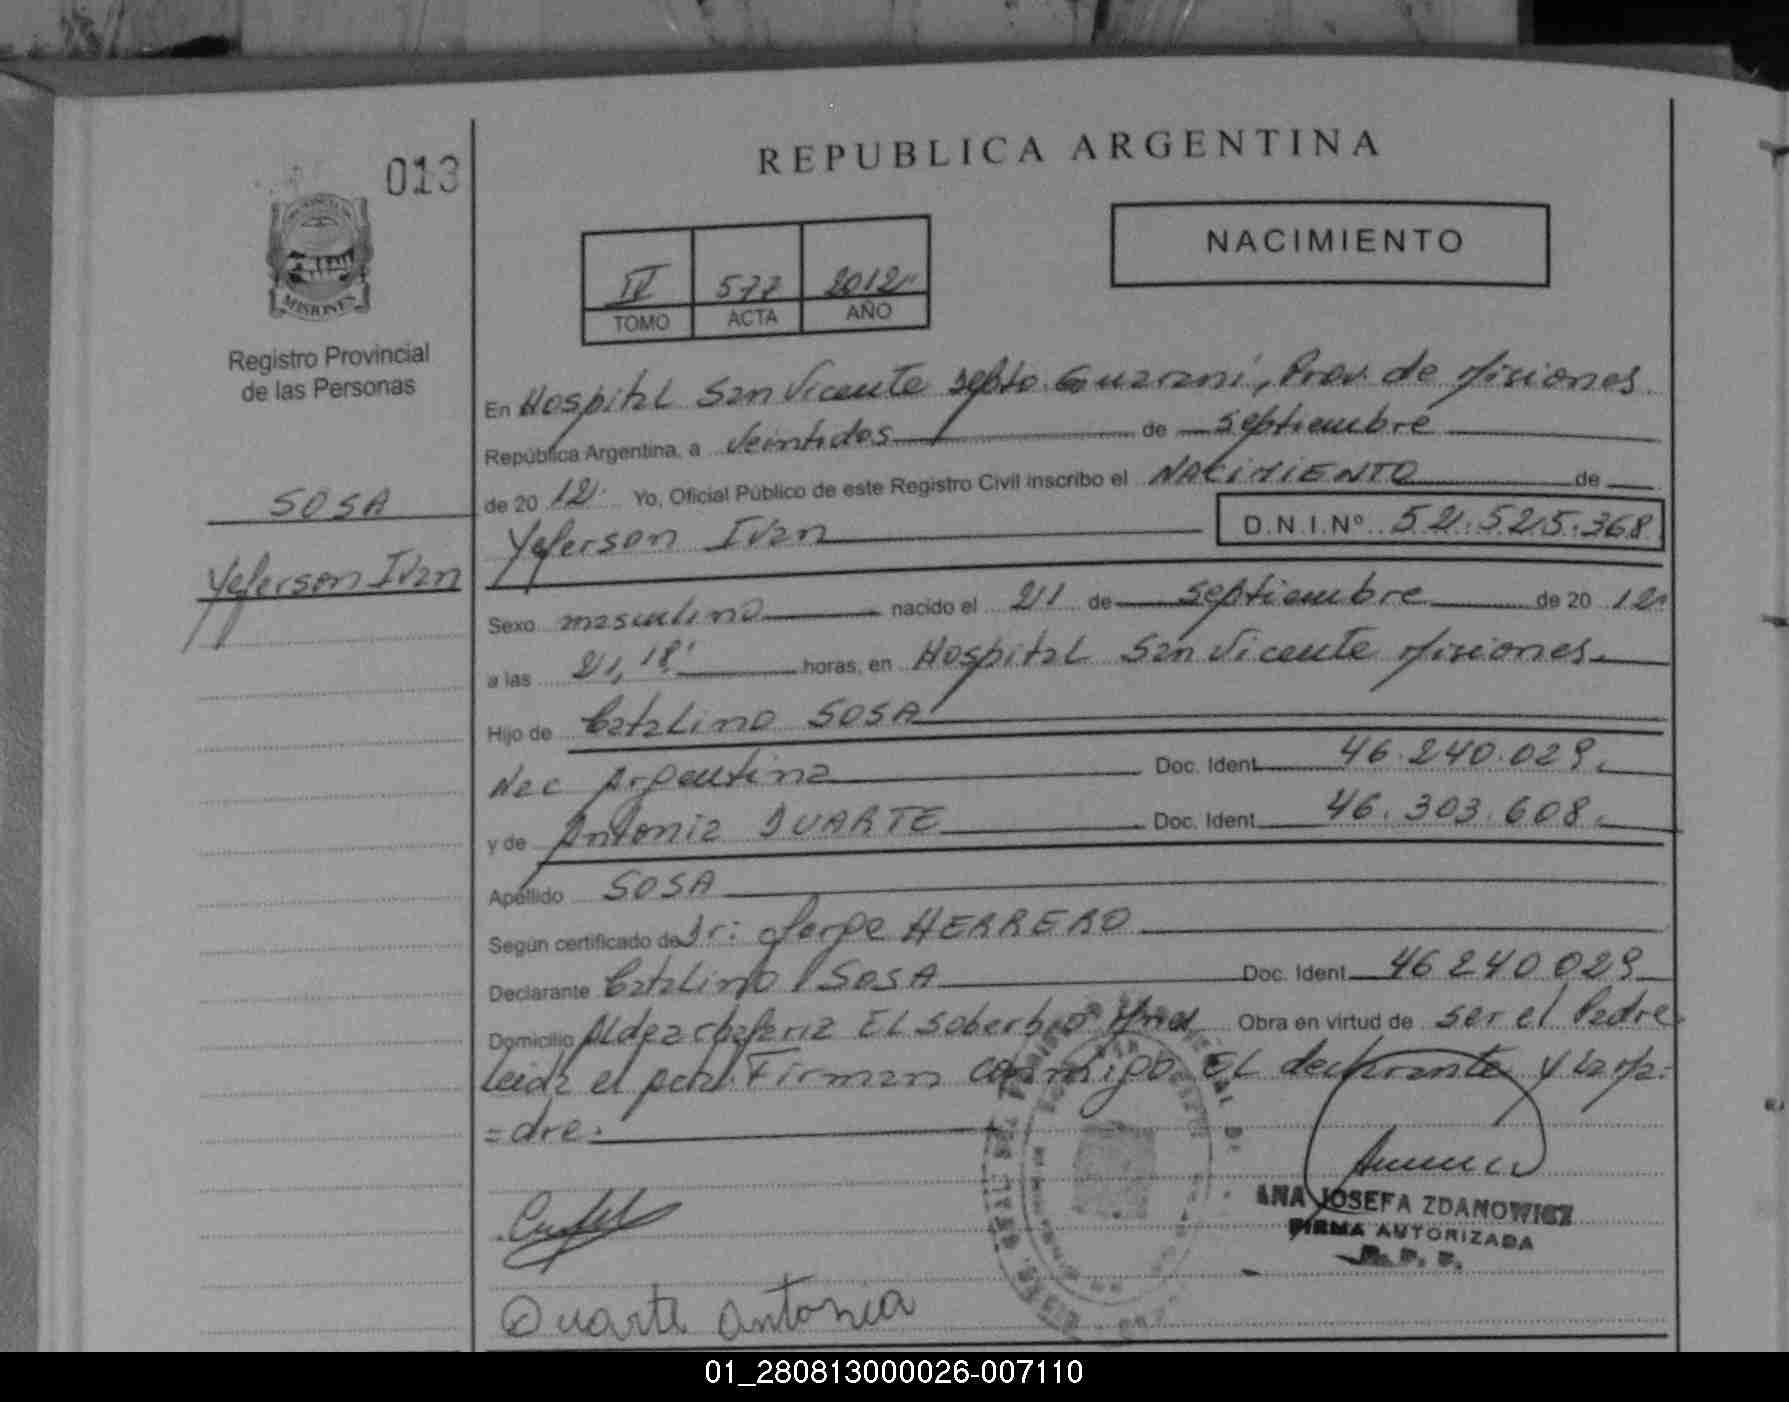 013
REPUBLICA ARGENTINA
NACIMIENTO
IV 577 2012
TOMO ACTA AÑO
MISIONES
Registro Provincial
de las Personas
SOSA
Yeferson Ivan
En Hospital San Vicente Depto. Guarani, Prov. de Misiones
República Argentina, a veintidos de septiembre
de 20 12 Yo, Oficial Público de este Registro Civil inscribo el NACIMIENTO de
Yeferson Ivan D.N.I.Nº 52.525.368
Sexo masculino nacido el 21 de septiembre de 20 12
a las 21,18' horas, en Hospital San Vicente Misiones
Hijo de Catalino SOSA
Nac Argentina Doc. Ident. 46.240.029.
y de Antonia DUARTE Doc. Ident. 46.303.608.
Apellido SOSA
Según certificado de Dr: Jorge HERRERO
Declarante Catalino SOSA Doc. Ident. 46240029
Domicilio Aldea El Soberbio Obra en virtud de ser el Padre
Leida el Firman conmigo EL declarante y la ma=
=dre.
ANA JOSEFA ZDANOWICZ
FIRMA AUTORIZADA
Duarte Antonia
01_280813000026-007110